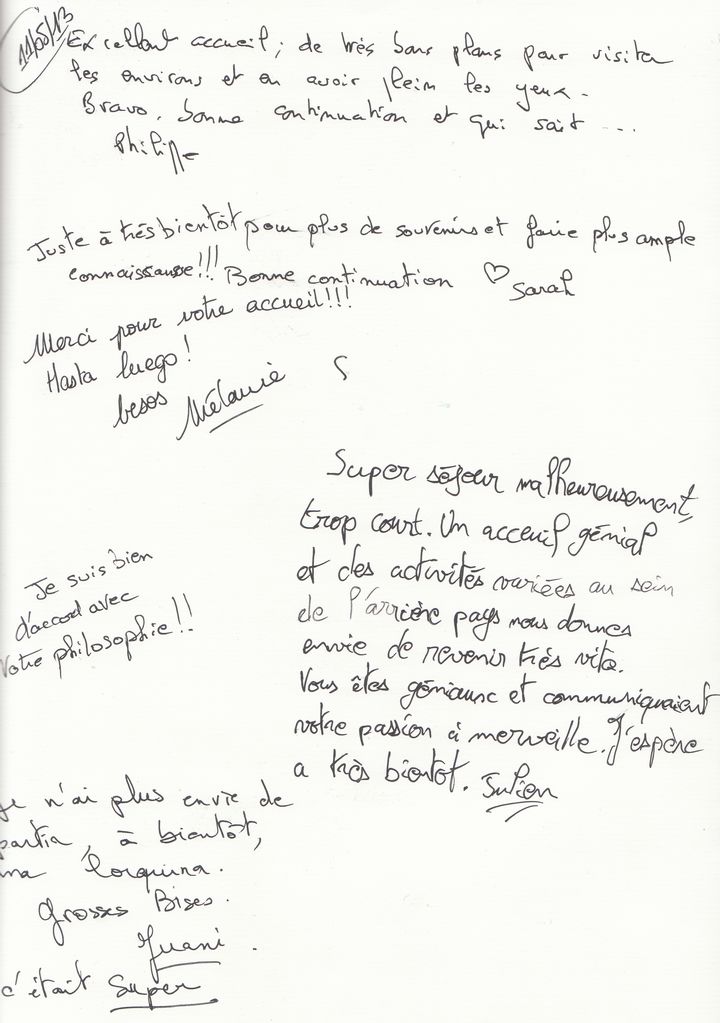 11/05/13
Excellent accueil ; de très bons plans pour visiter
les environs et en avoir plein les yeux.
Bravo, bonne continuation et qui sait ...
Philippe
Juste à très bientôt pour plus de souvenirs et faire plus ample
connaissance!!! Bonne continuation ♡ Sarah
Merci pour votre accueil!!!
Hasta luego!
besos Mélanie
Super séjour malheureusement,
trop court. Un acceuil génial
et des activités variées au sein
de l'arrière pays nous donnes
envie de revenir très vite.
Vous êtes géniaux et communiquaient
votre passion à merveille. J'espère
a très bientot. Julien
Je suis bien
d'accord avec
votre philosophie!!
Je n'ai plus envie de
partir, à bientôt,
ma
Grosses Bises.
Juani.
c'était Super